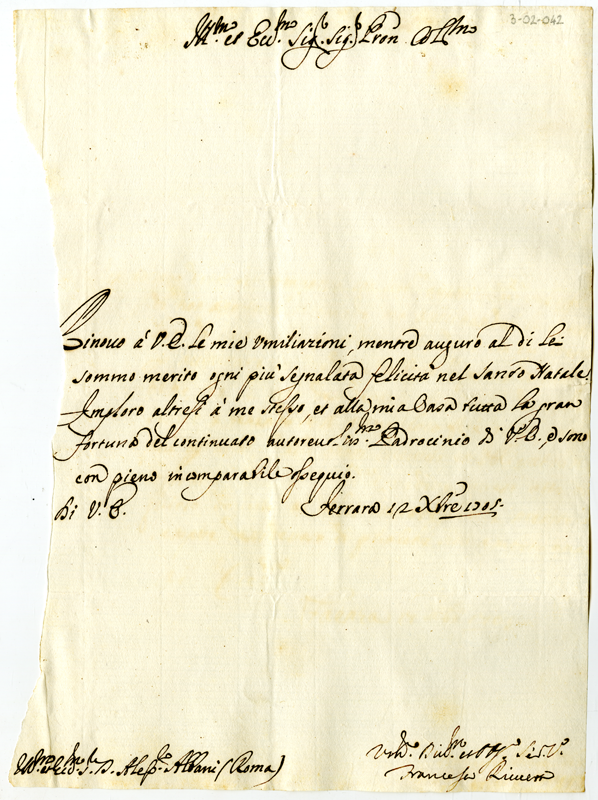 3-02-042
Ill.mo et Ecc.mo Sig.r Sig.r Pron Col.mo
Rinovo à V.E. le mie umiliazioni, mentre auguro al di lei
sommo merito ogni più segnalata felicità nel Santo Natale.
Imploro altresì à me stesso, et alla mia Casa tutta la gran
fortuna del continuato autorevoliss.mo Padrocinio di V.E., e sono
con pieno incomparabile ossequio.
Di V.E. Ferrara 12 Xbre 1705.
Ill.mo et Ecc.mo S. D. Aless.o Albani (Roma)
Francesco